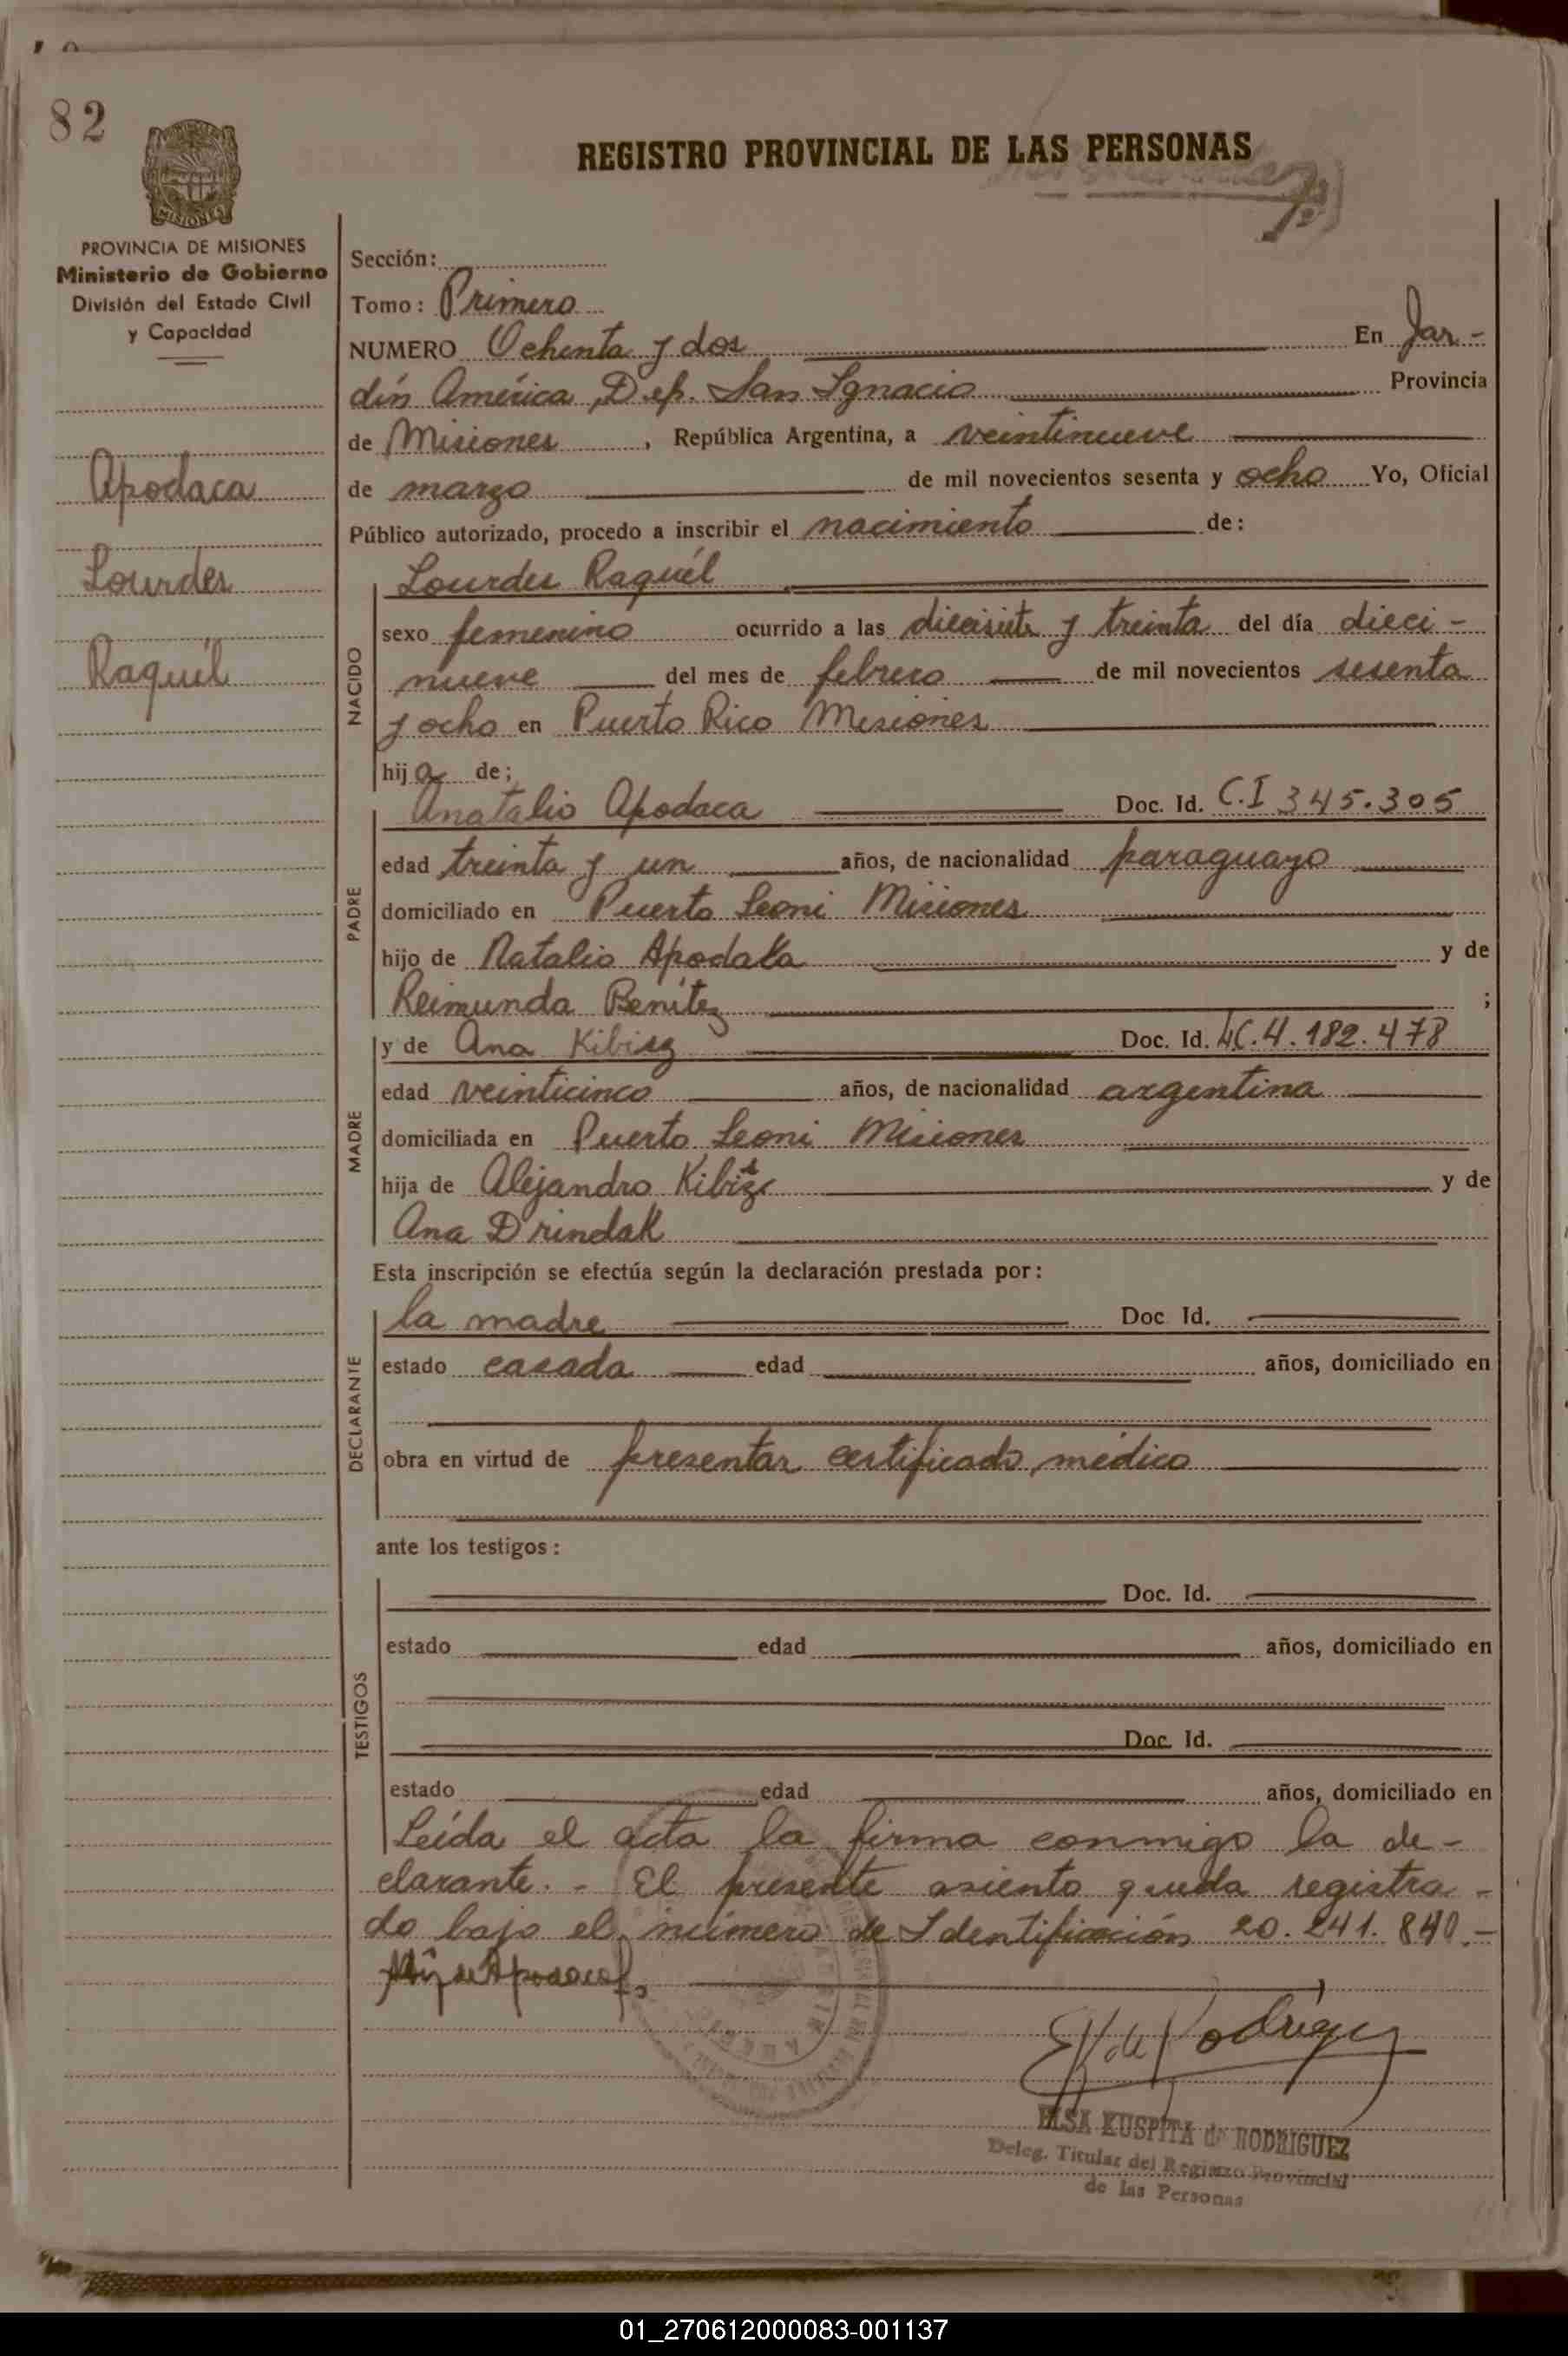 82
REGISTRO PROVINCIAL DE LAS PERSONAS
MISIONES
PROVINCIA DE MISIONES
Ministerio de Gobierno
División del Estado Civil
y Capacidad
Apodaca
Lourdes
Raquél
Sección:
Tomo: Primero
NUMERO Ochenta y dos En Jar-
dín América, Dep. San Ignacio Provincia
de Misiones, República Argentina, a veintinueve
de marzo de mil novecientos sesenta y ocho Yo, Oficial
Público autorizado, procedo a inscribir el nacimiento de:
NACIDO
Lourdes Raquél
sexo femenino ocurrido a las diecisiete y treinta del día dieci-
nueve del mes de febrero de mil novecientos sesenta
y ocho en Puerto Rico Misiones
hija de;
PADRE
Anatalio Apodaca Doc. Id. C.I 345.305
edad treinta y un años, de nacionalidad paraguayo
domiciliado en Puerto Leoni Misiones
hijo de Natalio Apodaka y de
Reimunda Benítez ;
MADRE
y de Ana Kibisz Doc. Id. LC.4.182.478
edad veinticinco años, de nacionalidad argentina
domiciliada en Puerto Leoni Misiones
hija de Alejandro y de
Ana Drindak
Esta inscripción se efectúa según la declaración prestada por:
DECLARANTE
la madre Doc Id.
estado casada edad años, domiciliado en
obra en virtud de presentar certificado médico
ante los testigos:
TESTIGOS
Doc. Id.
estado edad años, domiciliado en
Doc. Id.
estado edad años, domiciliado en
Leída el acta la firma conmigo la de-
clarante.- El presente asiento queda registra-
do bajo el número de Identificación 20.241.840.-
de Apodaca
E K de Rodriguez
ELSA KUSPITA de RODRIGUEZ
Deleg. Titular del Registro Provincial
de las Personas
01_270612000083-001137